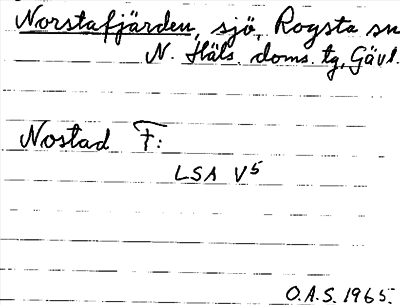 Norstafjärden, sjö, Rogsta sn
N. Häls. doms. tg, Gävl.
Nostad F:
LSA V5
O.A.S. 1965.